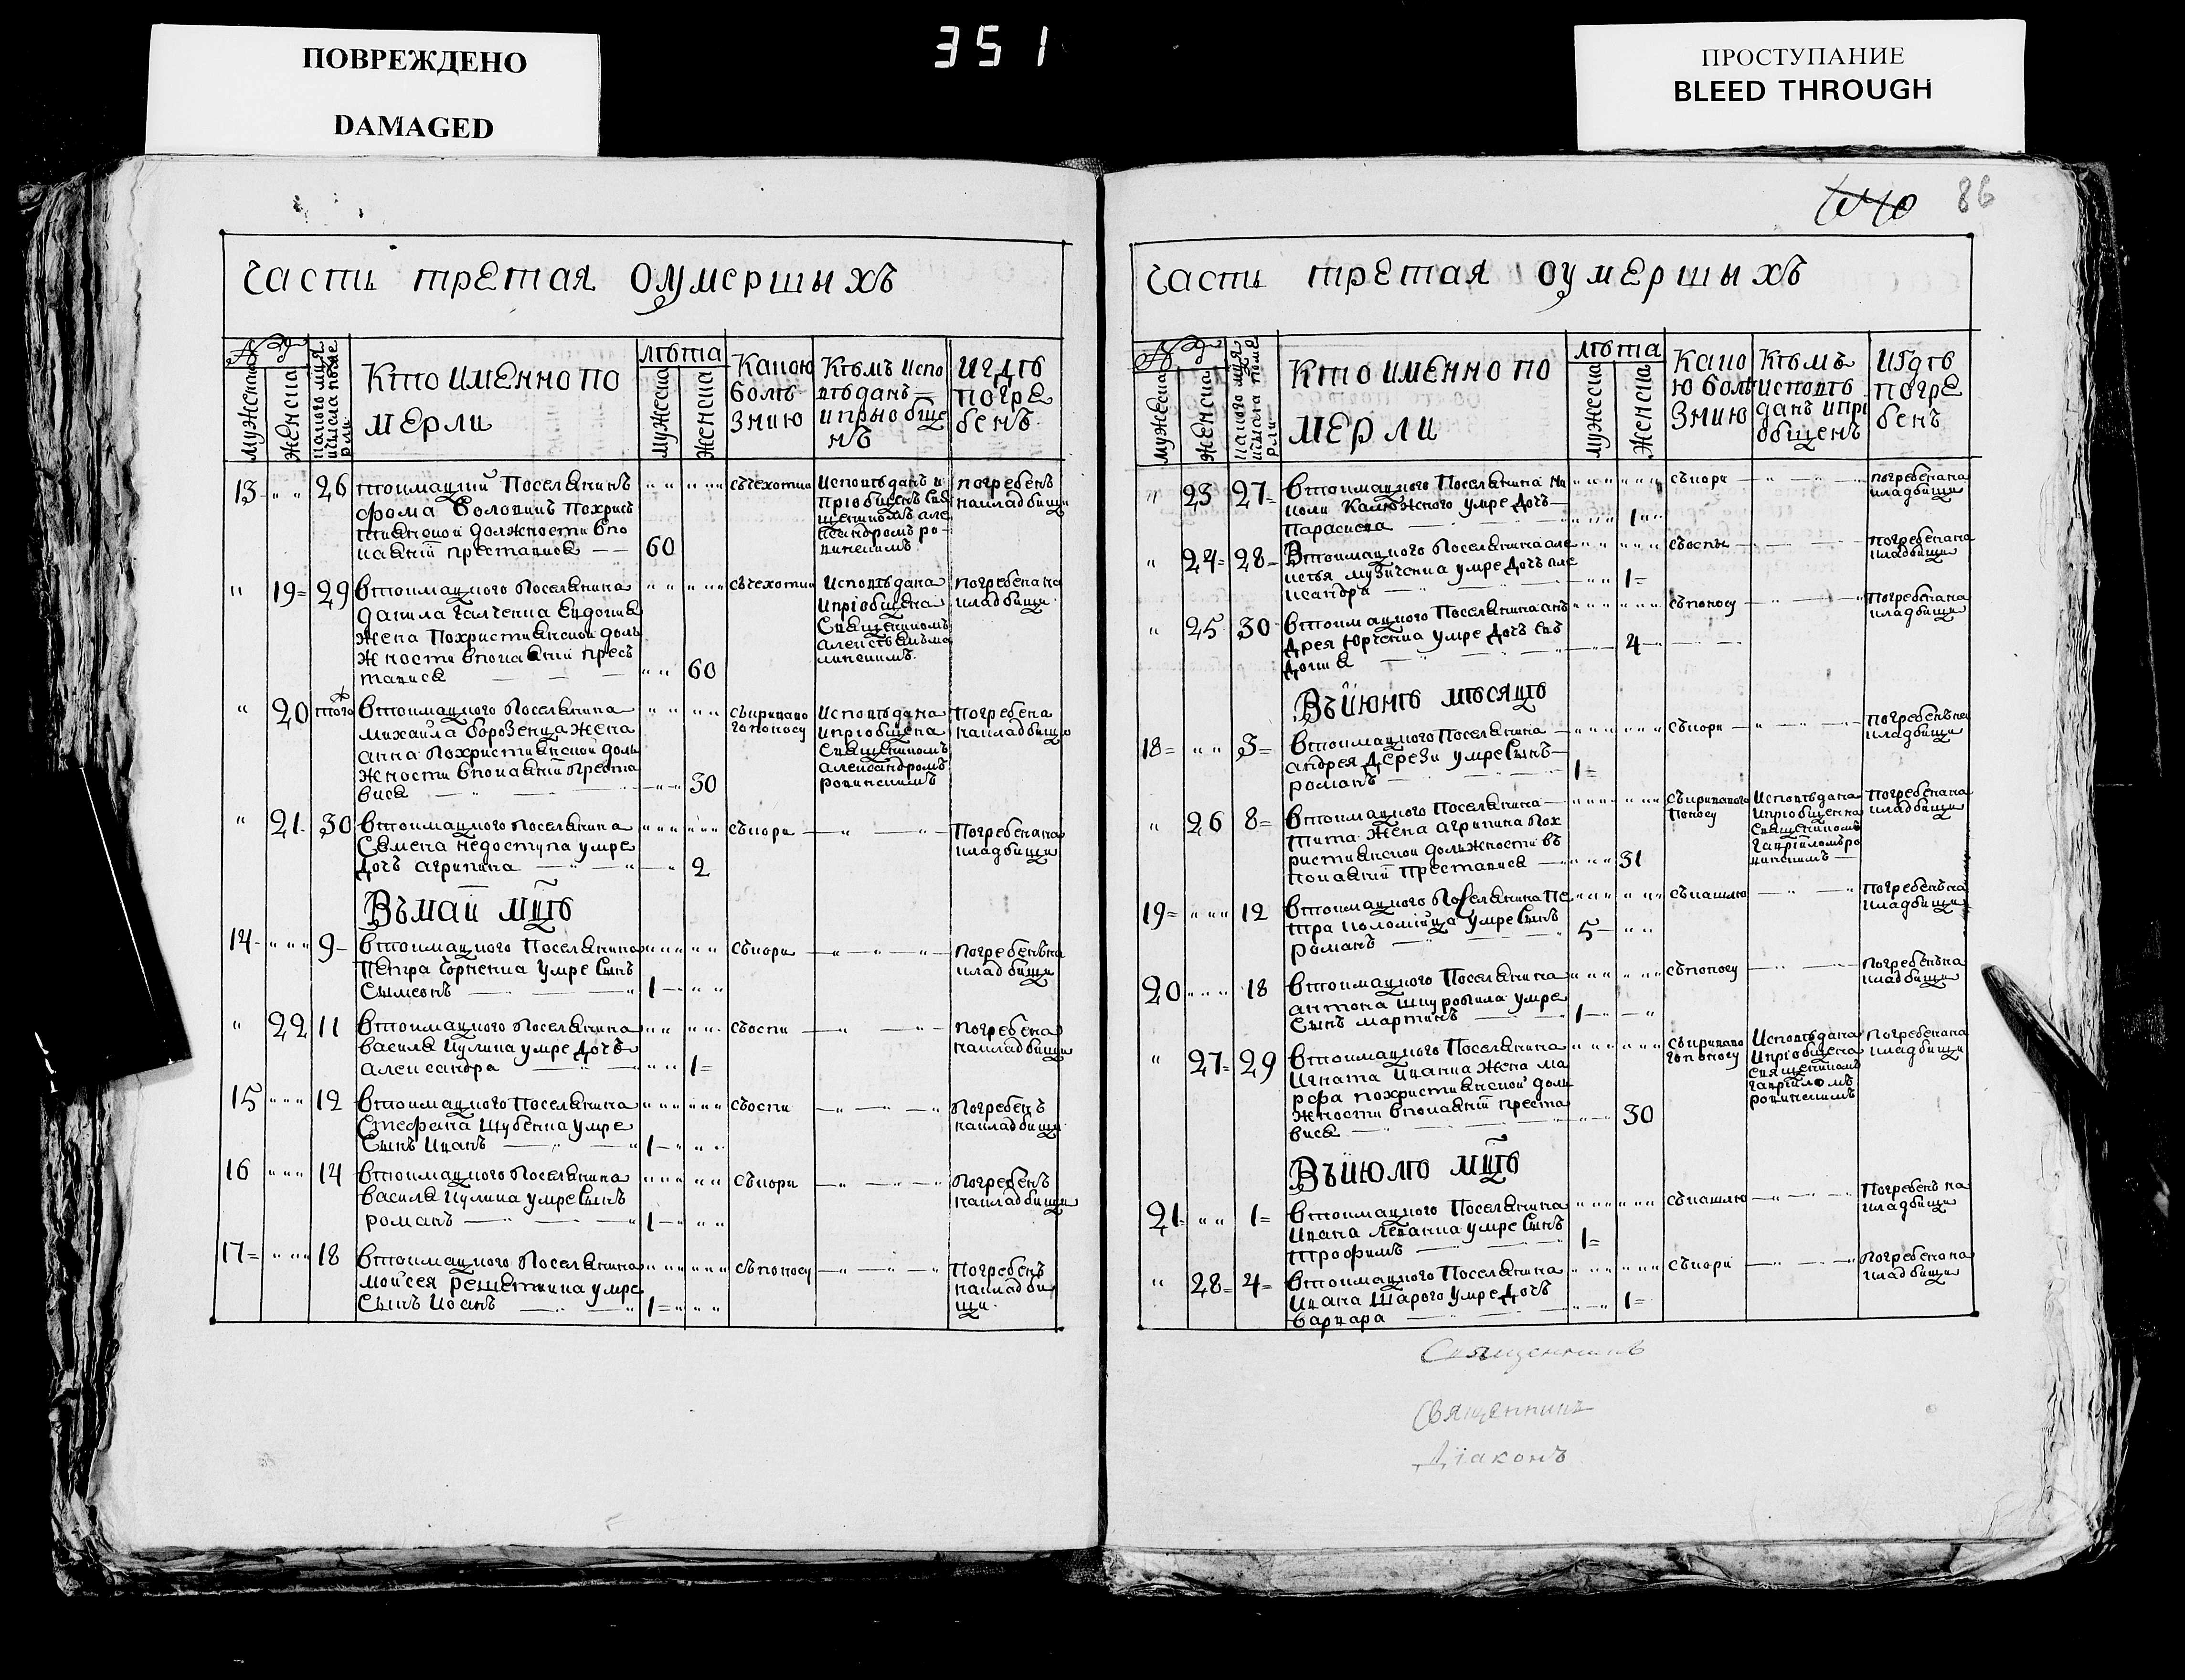 ПОВРЕЖДЕНО
DAMAGED
351
ПРОСТУПАНИЕ
BLEED THROUGH
86
Часть третая оумершыхъ
№
мужеска
женска
лѣта
Кто именно по
мерли
мужеска
женска
Какою
болѣ
знию
Кѣмъ испо
вѣданъ
и прыобще
нъ
И гдѣ
погре
бенъ
13 26 тоимацкий Поселянинъ
фома Болокинъ Похрис
тиянской должности впо
каянїи преставися 60
съчехотки
Исповѣданъ и
Прїобщенъ Свя
щенникомъ але
ксандромъ ро-
погребенъ
накладбищи
19 29 втоимацкого Поселянина
данила галченка Евдокия
жена Похристиянской дол
жности впокаянїи прес
тавися 60
съчехотки
Исповѣдана
Ипрїобщена
Священникомъ
погребена на
кладбищи
20 того втоимацкого Поселянина
михаила борозенца жена
анна Похристиянской дол
жности впокаянїи Преста
вися 30
съкриваво
го поносу
Исповѣдана
ипрїобщена
Священникомъ
александромъ
погребена
накладбищи
21 30 втоимацкого Поселянина
Семена недоступа умре
дочь агрипина 2
съкори
Погребенана
кладбищи
Въмаи мцѣ
14 9 втоимацкого Поселянина
Петра Горпенка умре Сынъ
Сымеонъ 1
съкори
погребенъна
кладбищи
22 11 втоимацкого Поселянина
василя кулика умре дочь
александра 1
съоспи
погребена
накладбищи
15 12 втоимацкого Поселянина
Стефана Шубенка умре
Сынъ Иванъ 1
съоспи
Погребенъ
накладбищи
16 14 втоимацкого Поселянина
василя кулика умре Сынъ
романъ 1
съкори
Погребенъ
накладбищи
17 18 втоимацкого Поселянина
мойсея решетника умре
Сынъ Иоанъ 1
съпоносу
Погребенъ
накладби
щи
Часть третая оумершыхъ
№
мужеска
женска
лѣта
Кто именно по
мерли
мужеска
женска
Како
ю болѣ
знию
Кѣмъ
исповѣ
данъ ипри
общенъ
Игдѣ
погре
бенъ
23 27 втоимацкого Поселянина ни
коли Калюжного умре дочь
Параскева 1
съкори
погребенана
кладбищи
24 28 Втоимацкого Поселянина але
ксѣя музиченка умре дочь але
ксандра 1
съоспы
погребенана
кладбищи
25 30 втоимацкого Поселянина анъ
дрея юрченка умре дочь евъ
докия 4
съпоносу
Погребенана
кладбищи
Въїюнѣ мѣсяцѣ
18 3 втоимацкого Поселянина
андрея дерези умре Сынъ
романъ 1
съкори
погребенъна
кладбищи
26 8 втоимацкого Поселянина
тита жена агрипина Пох
ристиянской должности въ
покаянїи Преставися 31
съкривавого
Поносу
Исповѣдана
Ипрїобщена
Священникомъ
Погребенана
кладбищи
19 12 втоимацкого Поселянина Пе
тра коломїйца умре Сынъ
романъ 5
съкашлю
погребенъна
кладбищи
20 18 втоимацкого Поселянина
антона Шкуропила умре
Сынъ мартинъ 1
съпоносу
погребенъна
кладбищи
27 29 втоимацкого Поселянина
Игната Иванка жена ма
рфа похристиянской дол
жности впокаянїи преста
вися 30
съкриваво
го поносу
Исповѣдана
Ипрїобщена
священникомъ
Погребенана
кладбищи
Въїюлѣ мцѣ
21 1 втоимацкого Поселянина
Ивана Леванка умре Сынъ
трофимъ 1
съкашлю
Погребенъ на
кладбищи
28 4 втоимацкого Поселянина
Ивана Шарого умре дочь
варвара 1
съкори
Погребена на
кладбищи
Священникъ
Священникъ
Дїаконъ